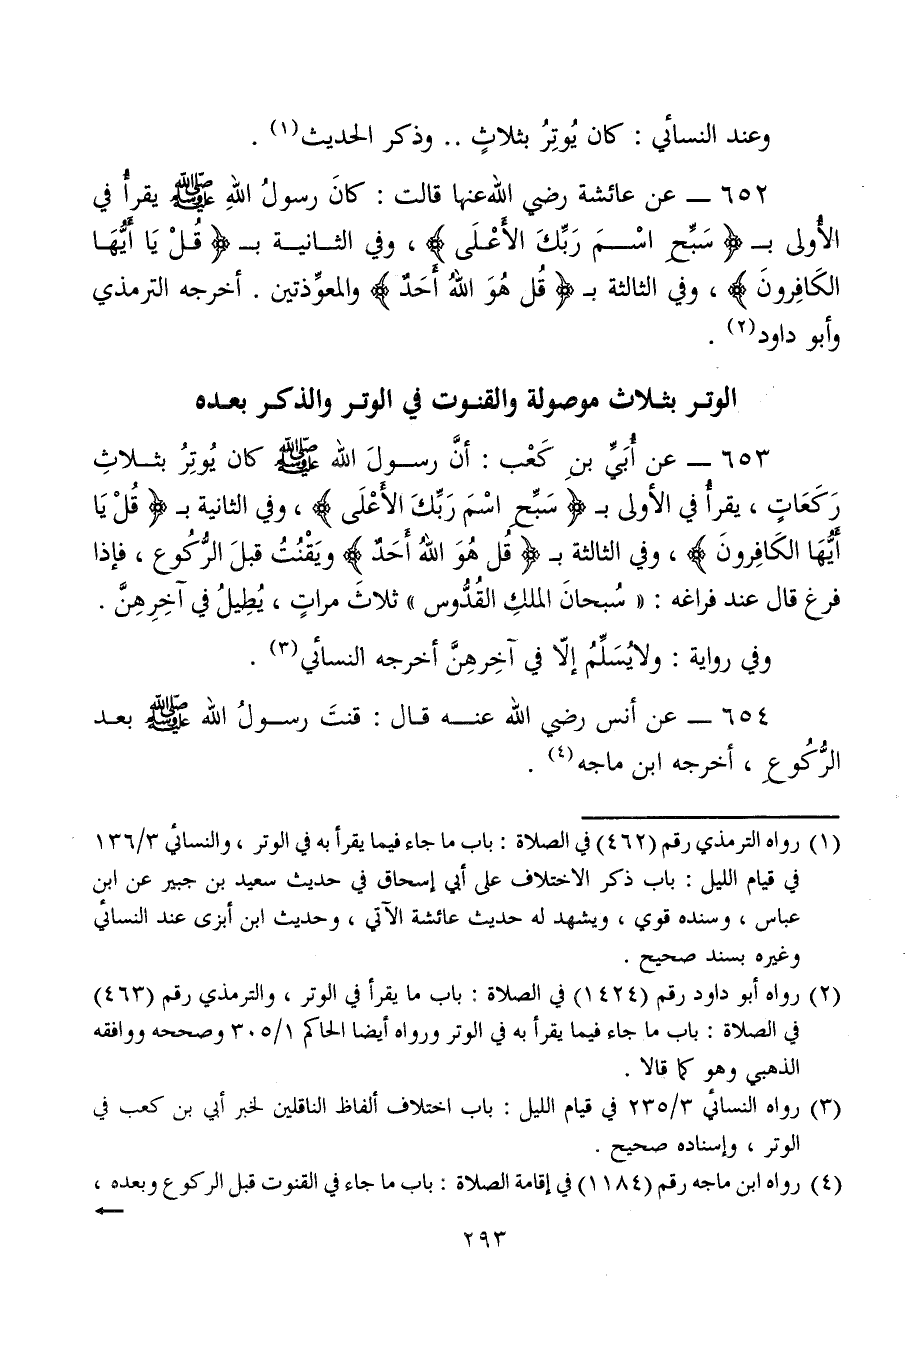 وعند النسائي : كان يُوتِرُ بثلاثٍ .. وذكر الحديث(١) .
٦٥٢ ــ عن عائشة رضي الله عنها قالت : كانَ رسولُ اللهِ ﷺ يقرأُ في
الأُولى بـ ﴿ سَبِّحِ اسْمَ رَبِّكَ الأَعْلَى ﴾ ، وفي الثانية بـ ﴿ قُلْ يَا أَيُّهَا
الكَافِرونَ ﴾ ، وفي الثالثة بـ ﴿ قُل هُوَ اللهُ أَحَدٌ ﴾ والمعوِّذتين . أخرجه الترمذي
وأبو داود(٢) .
الوتر بثلاث موصولة والقنوت في الوتر والذكر بعده
٦٥٣ ــ عن أُبَيِّ بنِ كَعْب : أنَّ رسولَ الله ﷺ كان يُوتِرُ بثلاثِ
رَكَعَاتٍ ، يقرأُ في الأولى بـ ﴿ سَبِّحِ اسْمَ رَبِّكَ الأَعْلَى ﴾ ، وفي الثانية بـ ﴿ قُلْ يَا
أَيُّهَا الكَافِرونَ ﴾ ، وفي الثالثة بـ ﴿ قُل هُوَ اللهُ أَحَدٌ ﴾ ويَقْنُتُ قبلَ الرُّكُوع ، فإذا
فرغ قال عند فراغه : « سُبحانَ الملكِ القُدُّوس » ثلاثَ مراتٍ ، يُطِيلُ في آخِرِهِنَّ .
وفي رواية : ولايُسَلِّمُ إلّا في آخِرِهِنَّ أخرجه النسائي(٣) .
٦٥٤ ــ عن أنس رضي الله عنه قال : قنتَ رسولُ الله ﷺ بعد
الرُّكُوعِ ، أخرجه ابن ماجه(٤) .
(١) رواه الترمذي رقم (٤٦٢) في الصلاة : باب ما جاء فيما يقرأ به في الوتر ، والنسائي ١٣٦/٣
في قيام الليل : باب ذكر الاختلاف على أبي إسحاق في حديث سعيد بن جبير عن ابن
عباس ، وسنده قوي ، ويشهد له حديث عائشة الآتي ، وحديث ابن أبزى عند النسائي
وغيره بسند صحيح .
(٢) رواه أبو داود رقم (١٤٢٤) في الصلاة : باب ما يقرأ في الوتر ، والترمذي رقم (٤٦٣)
في الصلاة : باب ما جاء فيما يقرأ به في الوتر ورواه أيضا الحاكم ٣٠٥/١ وصححه ووافقه
الذهبي وهو كما قالا .
(٣) رواه النسائي ٢٣٥/٣ في قيام الليل : باب اختلاف ألفاظ الناقلين لخبر أبي بن كعب في
الوتر ، وإسناده صحيح .
(٤) رواه ابن ماجه رقم (١١٨٤) في إقامة الصلاة : باب ما جاء في القنوت قبل الركوع وبعده ،
←
٢٩٣